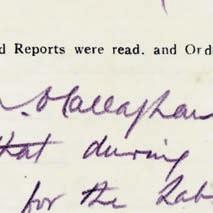 d Reports were read. and Ord
. O'Callaghan
that during
for the Lab